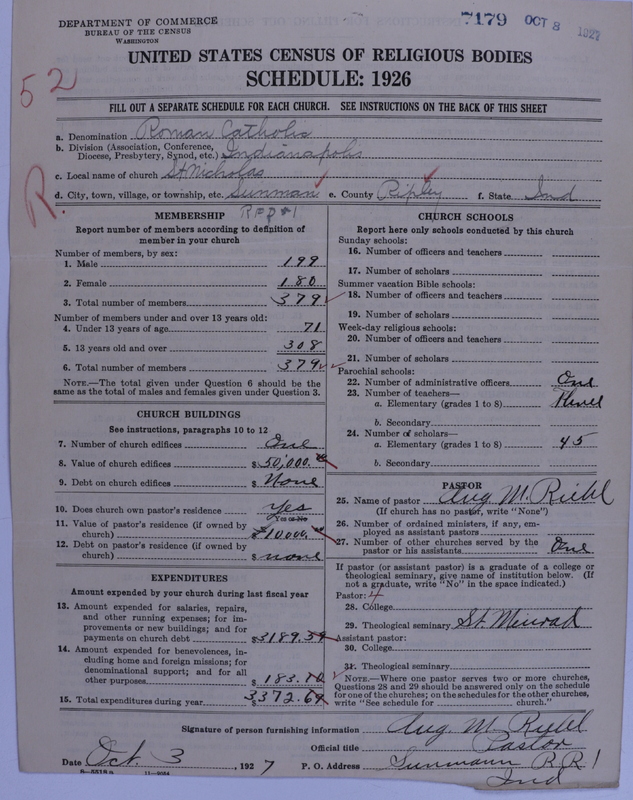 DEPARTMENT OF COMMERCE
BUREAU OF THE CENSUS
WASHINGTON
7179 OCT 3 1927
52
UNITED STATES CENSUS OF RELIGIOUS BODIES
SCHEDULE: 1926
FILL OUT A SEPARATE SCHEDULE FOR EACH CHURCH. SEE INSTRUCTIONS ON THE BACK OF THIS SHEET
a. Denomination Roman Catholic
b. Division (Association, Conference,
Diocese, Presbytery, Synod, etc.) Indianapolis
c. Local name of church St Nicholas
R.
d. City, town, village, or township, etc. Sunman e. County Ripley f. State Ind
MEMBERSHIP
Report number of members according to definition of
member in your church
Number of members, by sex:
1. Male 199
2. Female 180
3. Total number of members 379
Number of members under and over 13 years old:
4. Under 13 years of age 71
5. 13 years old and over 308
6. Total number of members 379
NOTE.—The total given under Question 6 should be the
same as the total of males and females given under Question 3.
CHURCH BUILDINGS
See instructions, paragraphs 10 to 12
7. Number of church edifices One
8. Value of church edifices $50,000.
9. Debt on church edifices $ None
10. Does church own pastor's residence Yes
Yes or No
11. Value of pastor's residence (if owned by
church) $10,000.
12. Debt on pastor's residence (if owned by
church) $ none
EXPENDITURES
Amount expended by your church during last fiscal year
13. Amount expended for salaries, repairs,
and other running expenses; for im-
provements or new buildings; and for
payments on church debt $3189.
14. Amount expended for benevolences, in-
cluding home and foreign missions; for
denominational support; and for all
other purposes $ 183.10
15. Total expenditures during year $3372.
CHURCH SCHOOLS
Report here only schools conducted by this church
Sunday schools:
16. Number of officers and teachers
17. Number of scholars
Summer vacation Bible schools:
18. Number of officers and teachers
19. Number of scholars
Week-day religious schools:
20. Number of officers and teachers
21. Number of scholars
Parochial schools:
22. Number of administrative officers One
23. Number of teachers—
a. Elementary (grades 1 to 8)
b. Secondary
24. Number of scholars—
a. Elementary (grades 1 to 8) 45
b. Secondary
PASTOR
25. Name of pastor Aug M. Riehl
(If church has no pastor, write "None")
26. Number of ordained ministers, if any, em-
ployed as assistant pastors
27. Number of other churches served by the
pastor or his assistants One
If pastor (or assistant pastor) is a graduate of a college or
theological seminary, give name of institution below. (If
not a graduate, write "No" in the space indicated.)
Pastor: 4
28. College
29. Theological seminary St. Meinrad
Assistant pastor:
30. College
31. Theological seminary
NOTE.—Where one pastor serves two or more churches,
Questions 28 and 29 should be answered only on the schedule
for one of the churches; on the schedules for the other churches,
write "See schedule for church."
Signature of person furnishing information Aug. M. Riehl
Official title Pastor
Date Oct. 3, 1927 P. O. Address Sunmann R.R. 1
Ind